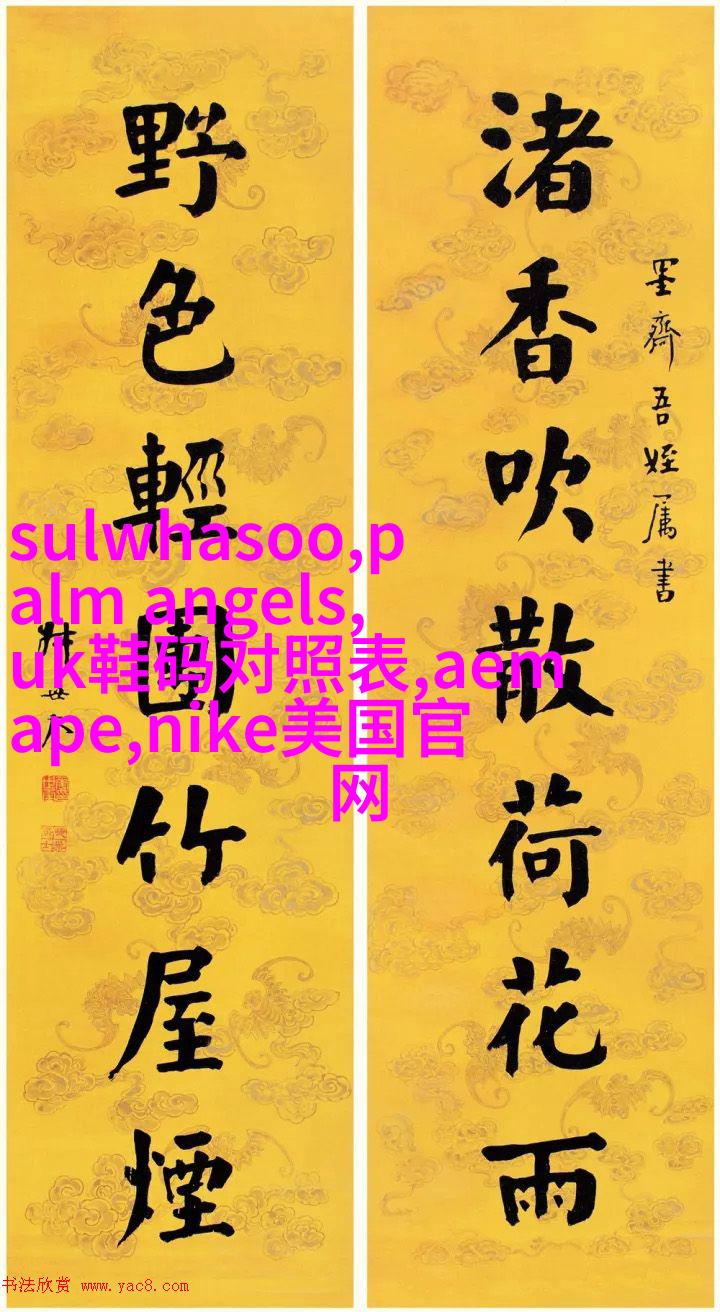 渚香吹散荷花雨
墨齋吾姪属書
野色輕團竹屋煙
sulwhasoo,p
alm angels,
uk鞋码对照表,aem
ape,nike美国官
网
书法欣赏 www.yac8.com